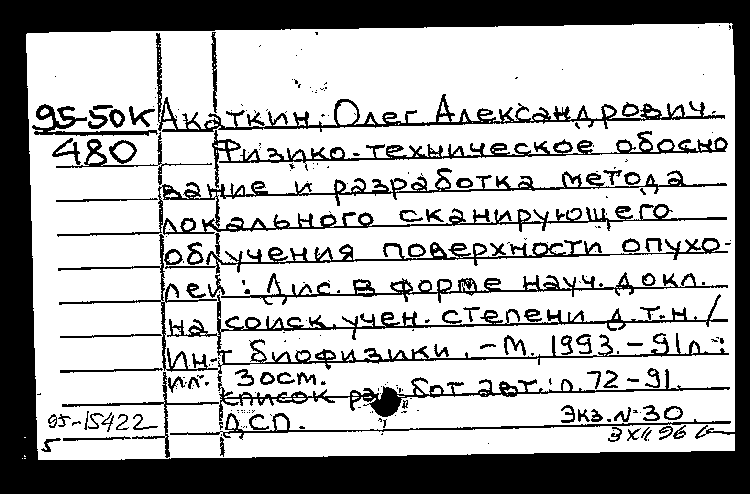 95-50К Акаткин, Олег Александрович.
480 Физико-техническое обосно
вание и разработка метода
локального сканирующего
облучения поверхности опухо-
лей : Дис. в форме науч. докл.
на соиск. учен. степени д.т.н. /
Ин-т биофизики. - М., 1993. - 91л.:
ил. 30см.
список работ авт.: л. 72-91.
95-15422 ДСП. Экз. № 30.
5